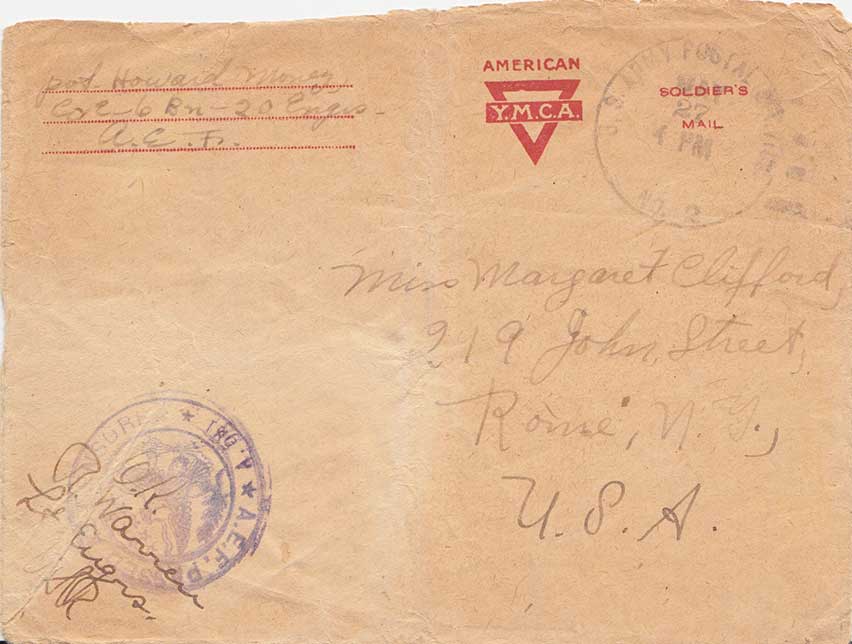 pvt. Howard
Co E-6 Bn-20 Engrs-
A.E.F.
AMERICAN
Y.M.C.A.
SOLDIER'S
MAIL
U.S. ARMY POSTAL
27
4 PM
NO. 2
Miss Margaret Clifford,
219 John Street,
Rome, N.Y.,
U.S.A.
A.E.F.
O.K.
Warren
Lt Engrs.